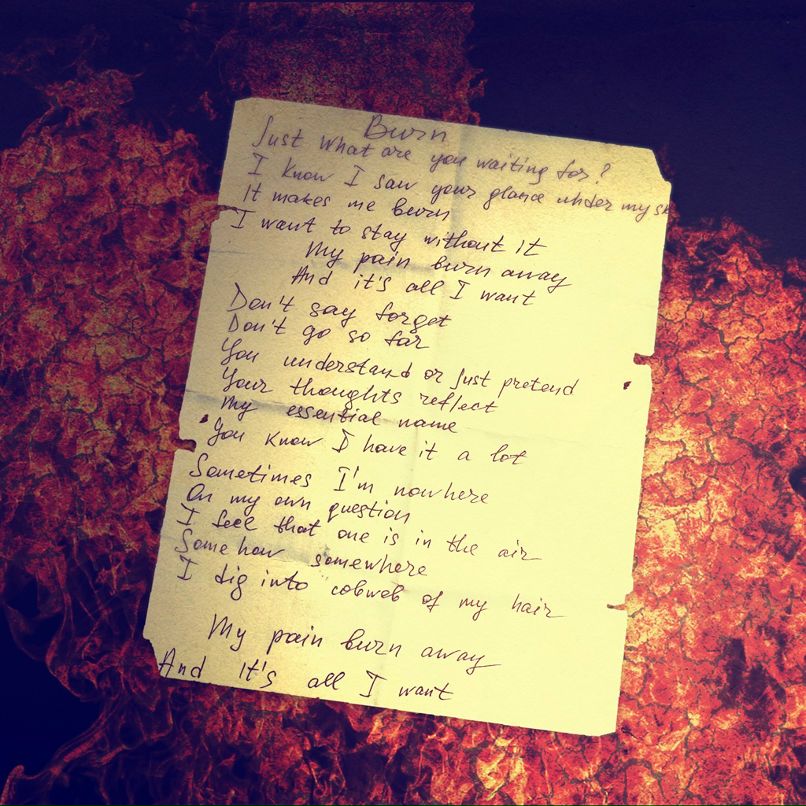 Burn
Just what are you waiting for?
I know I saw your glance under my sk
It makes me burn
I want to stay without it
My pain burn away
And it's all I want
Don't say forget
Don't go so far
You understand or just pretend
Your thoughts reflect
My essential name
You know I have it a lot
Sometimes I'm nowhere
On my own question
I feel that one is in the air
Somehow somewhere
I dig into cobweb of my hair
My pain burn away
And it's all I want